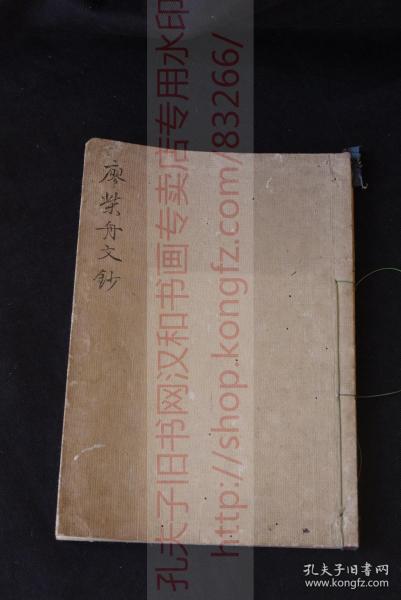 廖柴舟文鈔
孔夫子旧书网汉和书画专卖店专用水印
http://shop.kongfz.com/83266/
孔夫子旧书网
www.kongfz.com